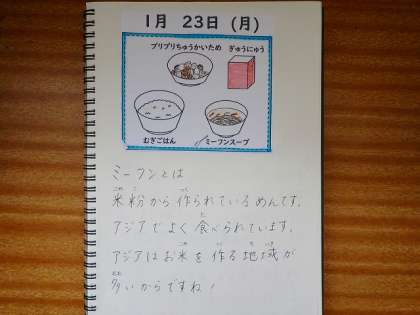 1月 23日 (月)
プリプリちゅうかいため ぎゅうにゅう
むぎごはん ミーフンスープ
ミーフンとは
米粉から作られているめんです。
アジアでよく食べられています。
アジアはお米を作る地域が
多いからですね!